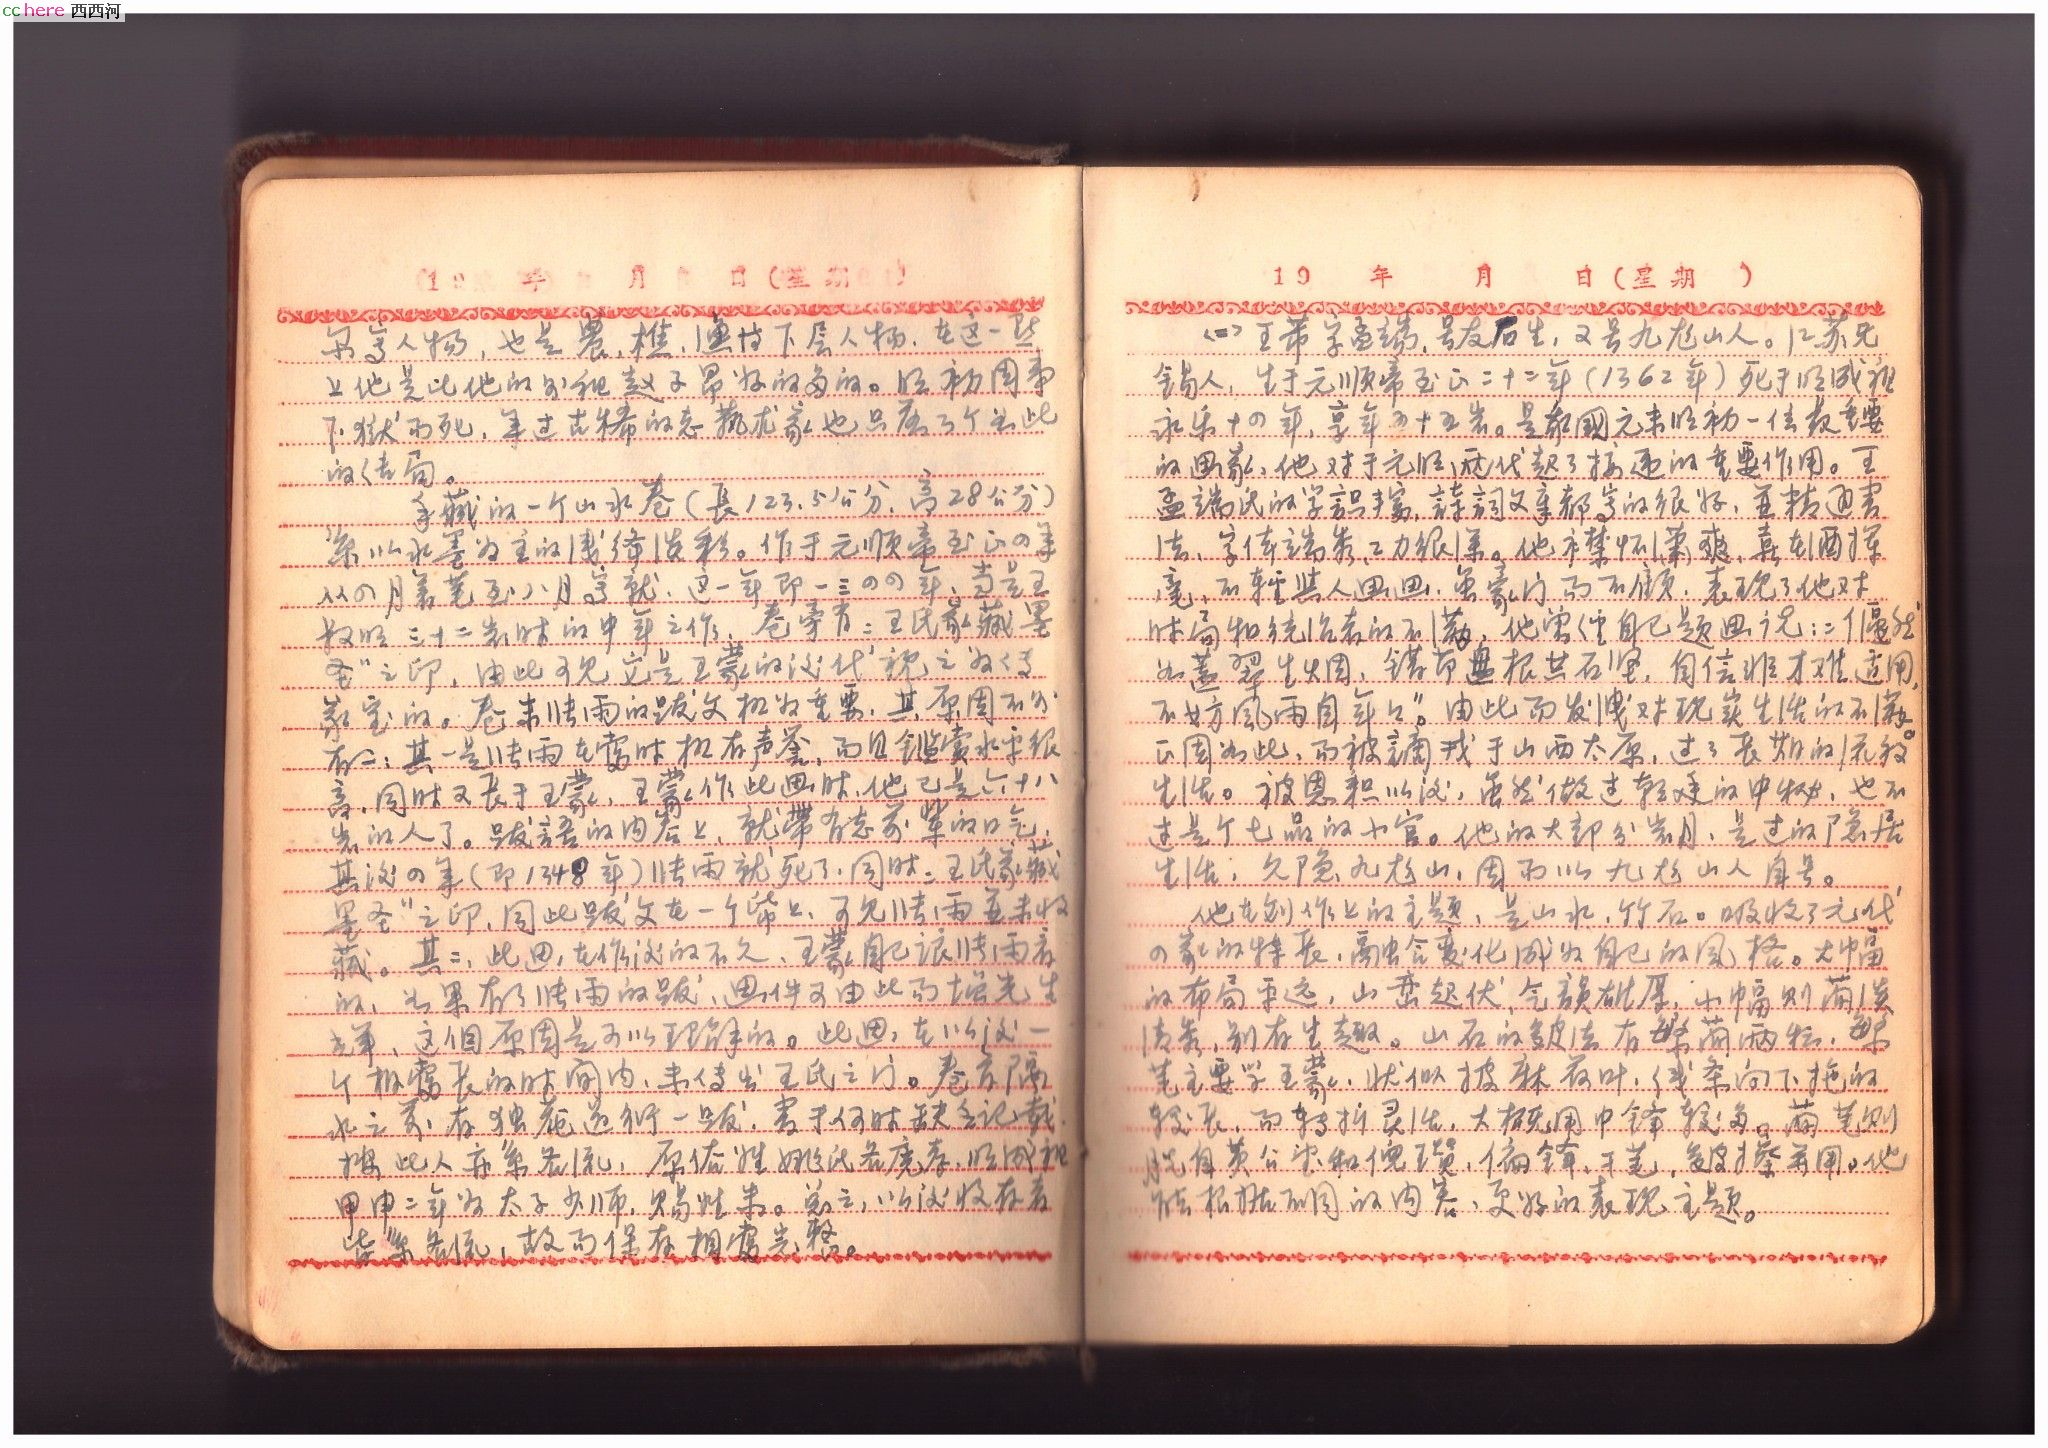 cchere 西西河
19 年 月 日(星期 )
所写人物，也是農、樵、渔技下层人物，在这一点
上他是比他的外祖赵子昂好的多的。明初因事
下獄而死，年过古稀的老艺术家，也只落了个如此
的结局。
手藏的一个山水卷（長123.5公分，高28公分）
系以水墨为主的浅绛淡彩。作于元順帝至正四年
从四月着笔至八月写就，这一年即一三四四年，当是王
叔明三十二岁时的中年之作，卷旁有"王氏家藏墨
圣"之印，由此可见它是王蒙的後代视之为传
家宝的。卷末張雨的跋文极为重要，其原因不外
有二：其一是張雨在當时极有声誉，而且鑑賞水平很
高，同时又長于王蒙，王蒙作此画时，他已是六十八
岁的人了。跋語的内容上，就带有老前辈的口气，
其後四年（即1348年）張雨就死了，同时"王氏家藏
墨圣"之印，同此跋文在一个紙上，可见張雨並未收
藏。其二，此画在作後的不久，王蒙自己請張雨看
的，如果有了張雨的跋，画件可由此而增光生
輝，这個原因是可以理解的。此画，在以後一
个相當長的时间内，未传出王氏之门。卷首隔
水之前有独庵道衍一跋，書于何时缺乏记载，
按此人亦系名流，原俗姓姚氏名廣孝，明成祖
甲申二年为太子少师，赐姓朱。总之，以後收存者
皆系名流，故而保存相當完整。
19 年 月 日(星期 )
〈二〉王芾字孟端，号友石生，又号九龙山人。江苏无
錫人，生于元順帝至正二十二年（1362年）死于明成祖
永乐十四年，享年五十五岁。是我國元末明初一位最重要
的画家，他对于元明两代起了接遞的重要作用。王
孟端氏的学識丰富，詩詞文章都写的很好，並精通書
法，字体端秀，工力很深。他襟怀瀟爽，喜在酒後挥
毫，不轻與人画画，虽豪门而不顧，表现了他对
时局和统治者的不满，他曾經自己题画说："偃然
如蓋翠生烟，錯节盘根共石坚，自信非才难适用，
不妨風雨自年年"。由此而发洩对现实生活的不满。
正因如此，而被謫戍于山西大原，过了長期的流放
生活。被恩赦以後，虽然做过朝廷的中秘，也不
过是个七品的小官。他的大部分岁月，是过的隐居
生活，久隐九龙山，因而以九龙山人自号。
他在创作上的主题，是山水，竹石。吸收了元代
四家的特長，融会变化成为自己的風格。大幅
的布局平远，山峦起伏，气韻雄厚，小幅则简淡
清秀，别有生趣。山石的皴法有繁简两种，繁
笔主要学王蒙，状似披麻荷叶，线条向下拖的
较長，而转折灵活，大概用中鋒较多。简笔则
脱自黄公望和倪瓚，偏鋒，干笔，皴擦并用。他
能根据不同的内容，更好的表现主题。